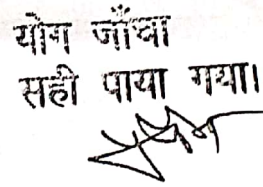 योग जाँचा
सही पाया गया।